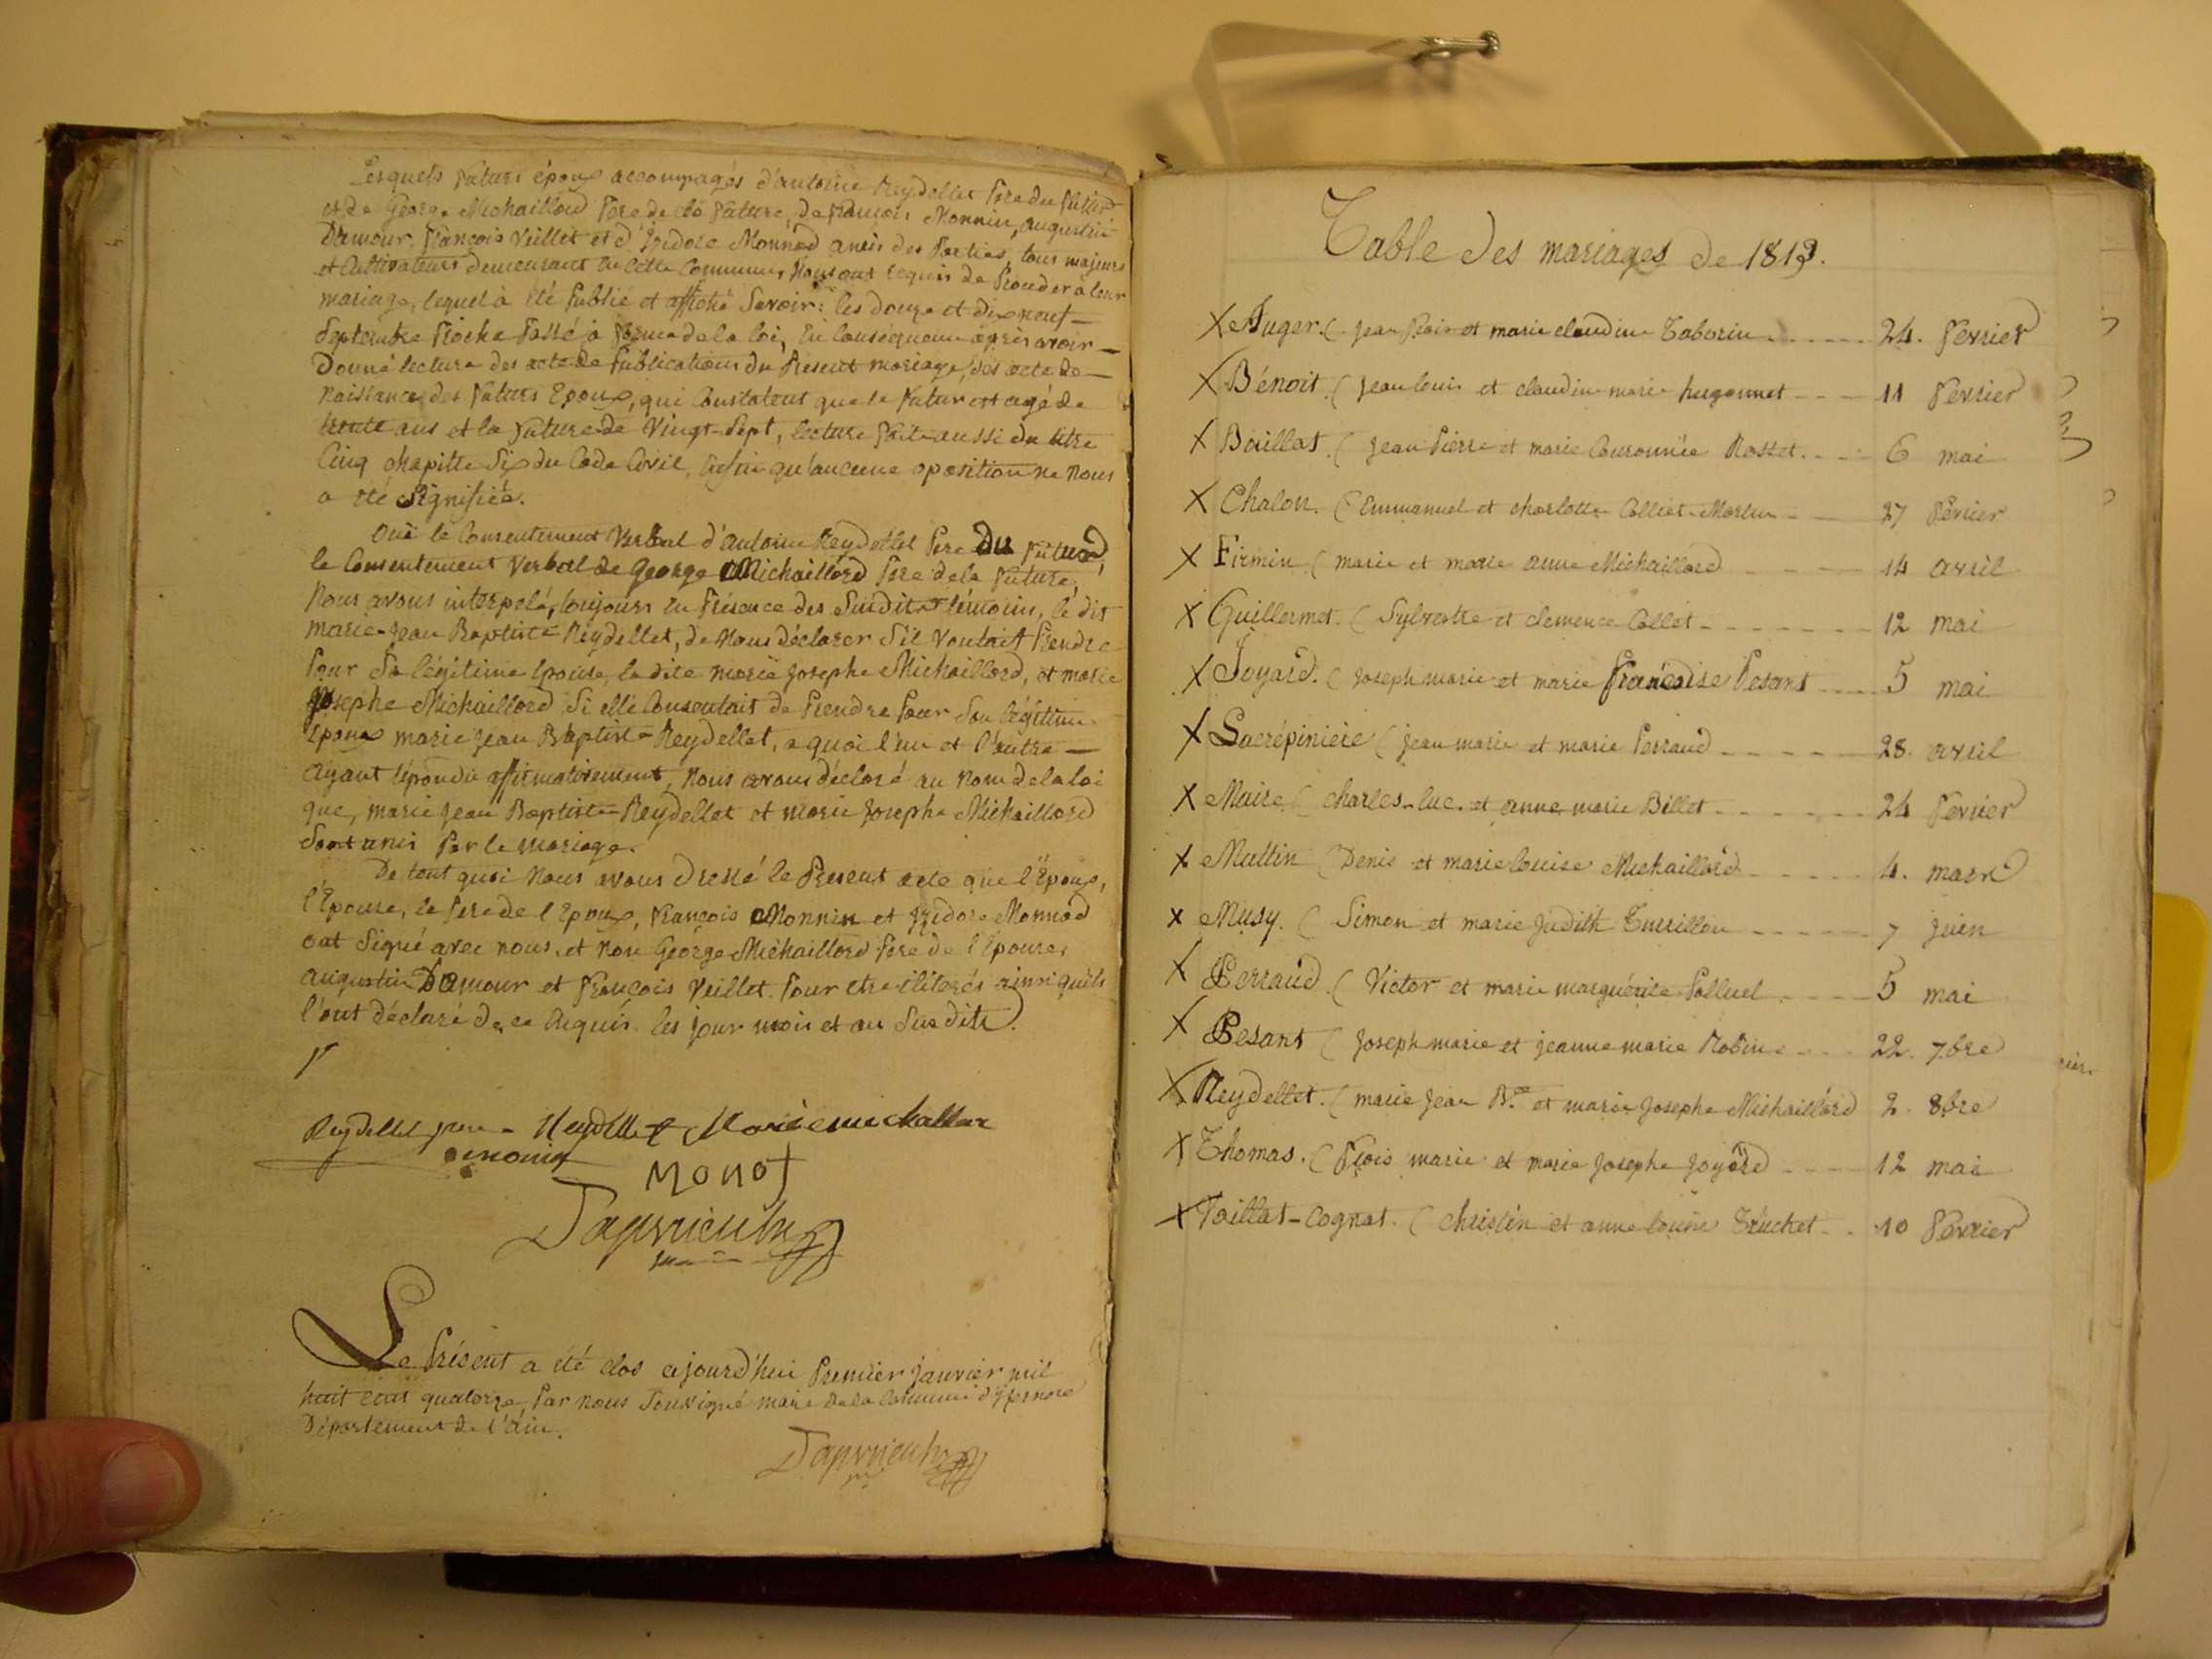 Lesquels futurs époux accompagnés d'antoine Reydellet Pere du futur
et de George Michaillard Pere de la future, de francois Monnin, augustin
D'amour, François Veillet et d'Isidore Monnod amis des Parties, tous majeurs
et Cultivateurs demeurant en cette Commune, Nous ont requis de Proceder à leur
mariage, lequel à été Publié et affiché Savoir: les douze et dix neuf
Septembre Proche Passé à forme de la loi, En Conséquence après avoir
Donné lecture des acte de Publications du Present mariage, des acte de
Naissance des futurs Epoux, qui Constatent que le futur est agé de
trente ans et la future de Vingt-Sept, lecture faite aussi du titre
Cinq chapitre Six du Code Civil, Enfin qu'aucune oposition ne nous
a été Signifiée.
Ouï le Consentement Verbal d'antoine Reydellet Pere Du futur,
le Consentement Verbal de George Michaillard Pere de la future,
Nous avons interpelé, toujours en Présence des Susdits témoins, le dit
marie-Jean Baptiste Reydellet, de Nous déclarer S'il Voulait Prendre
Pour Sa légitime Epouse, la dite marie Josephe Michaillard, et marie
Josephe Michaillard, Si elle Consentait de Prendre Pour Son légitime
Epoux marie Jean Baptiste Reydellet, a quoi l'un et l'autre
ayant répondu affirmativement, Nous avons déclaré au Nom de la loi
que, marie Jean Baptiste Reydellet et marie Josephe Michaillard
Sont unis Par le mariage.
De tout quoi Nous avons Dressé le Present acte que l'Epoux,
l'Epouse, le Pere de l'Epoux, François Monnin et Isidore Monnod
ont Signé avec nous, et Non George Michaillard Pere de l'Epouse,
augustin Damour et François Veillet Pour etre ilitérés ainsi qu'ils
l'ont déclaré de ce Requis. les jour mois et an Susdits.
Reydellet pere Reydellet Marie michallar
monin
Monot
Le Présent a été clos ajourd'hui Premier janvier mil
huit cent quatorze, Par nous Soussigné maire de la Commune d'Izernore
Département de l'ain.
Table des mariages de 1813.
X Auger. ( Jean et marie claudine Taborin 24. Fevrier
X Bénoit. ( Jean louis et claudine marie hugonnet 11 Fevrier
X Boillat. ( Jean Pierre et marie Couronnée Rosset. 6 mai
X Chalon. ( Emmanuel et charlotte Colliet-Marlin 27 Fevrier
X Firmin ( marie et marie anne Michaillard 14 avril
X Guillermet. ( Sylvestre et clemence Collet 12 mai
X Joyard. ( Joseph marie et marie Françoise Pesant 5 mai
X Lacrépiniere ( Jean marie et marie Perraud 28. avril
X Maire ( charles-luc. et anne marie Billet 24 Fevrier
X Mullin ( Denis et marie louise Michaillard 4. mars
X Musy. ( Simon et marie Judith Turrillon 7 juin
X Perraud. ( Victor et marie marguérite Palluel 5 mai
X Pesant ( Joseph marie et jeanne marie Robin 22. 7bre
X Reydellet. ( marie Jean Bte et marie Josephe Michaillard 2. 8bre
X Thomas. ( Fçois marie et marie Josephe Joyard 12 mai
X Voillat-Cognat. ( christin et anne louise Truchet 10 Fevrier